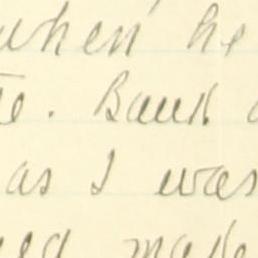 when he
te. Bank
as I was
made